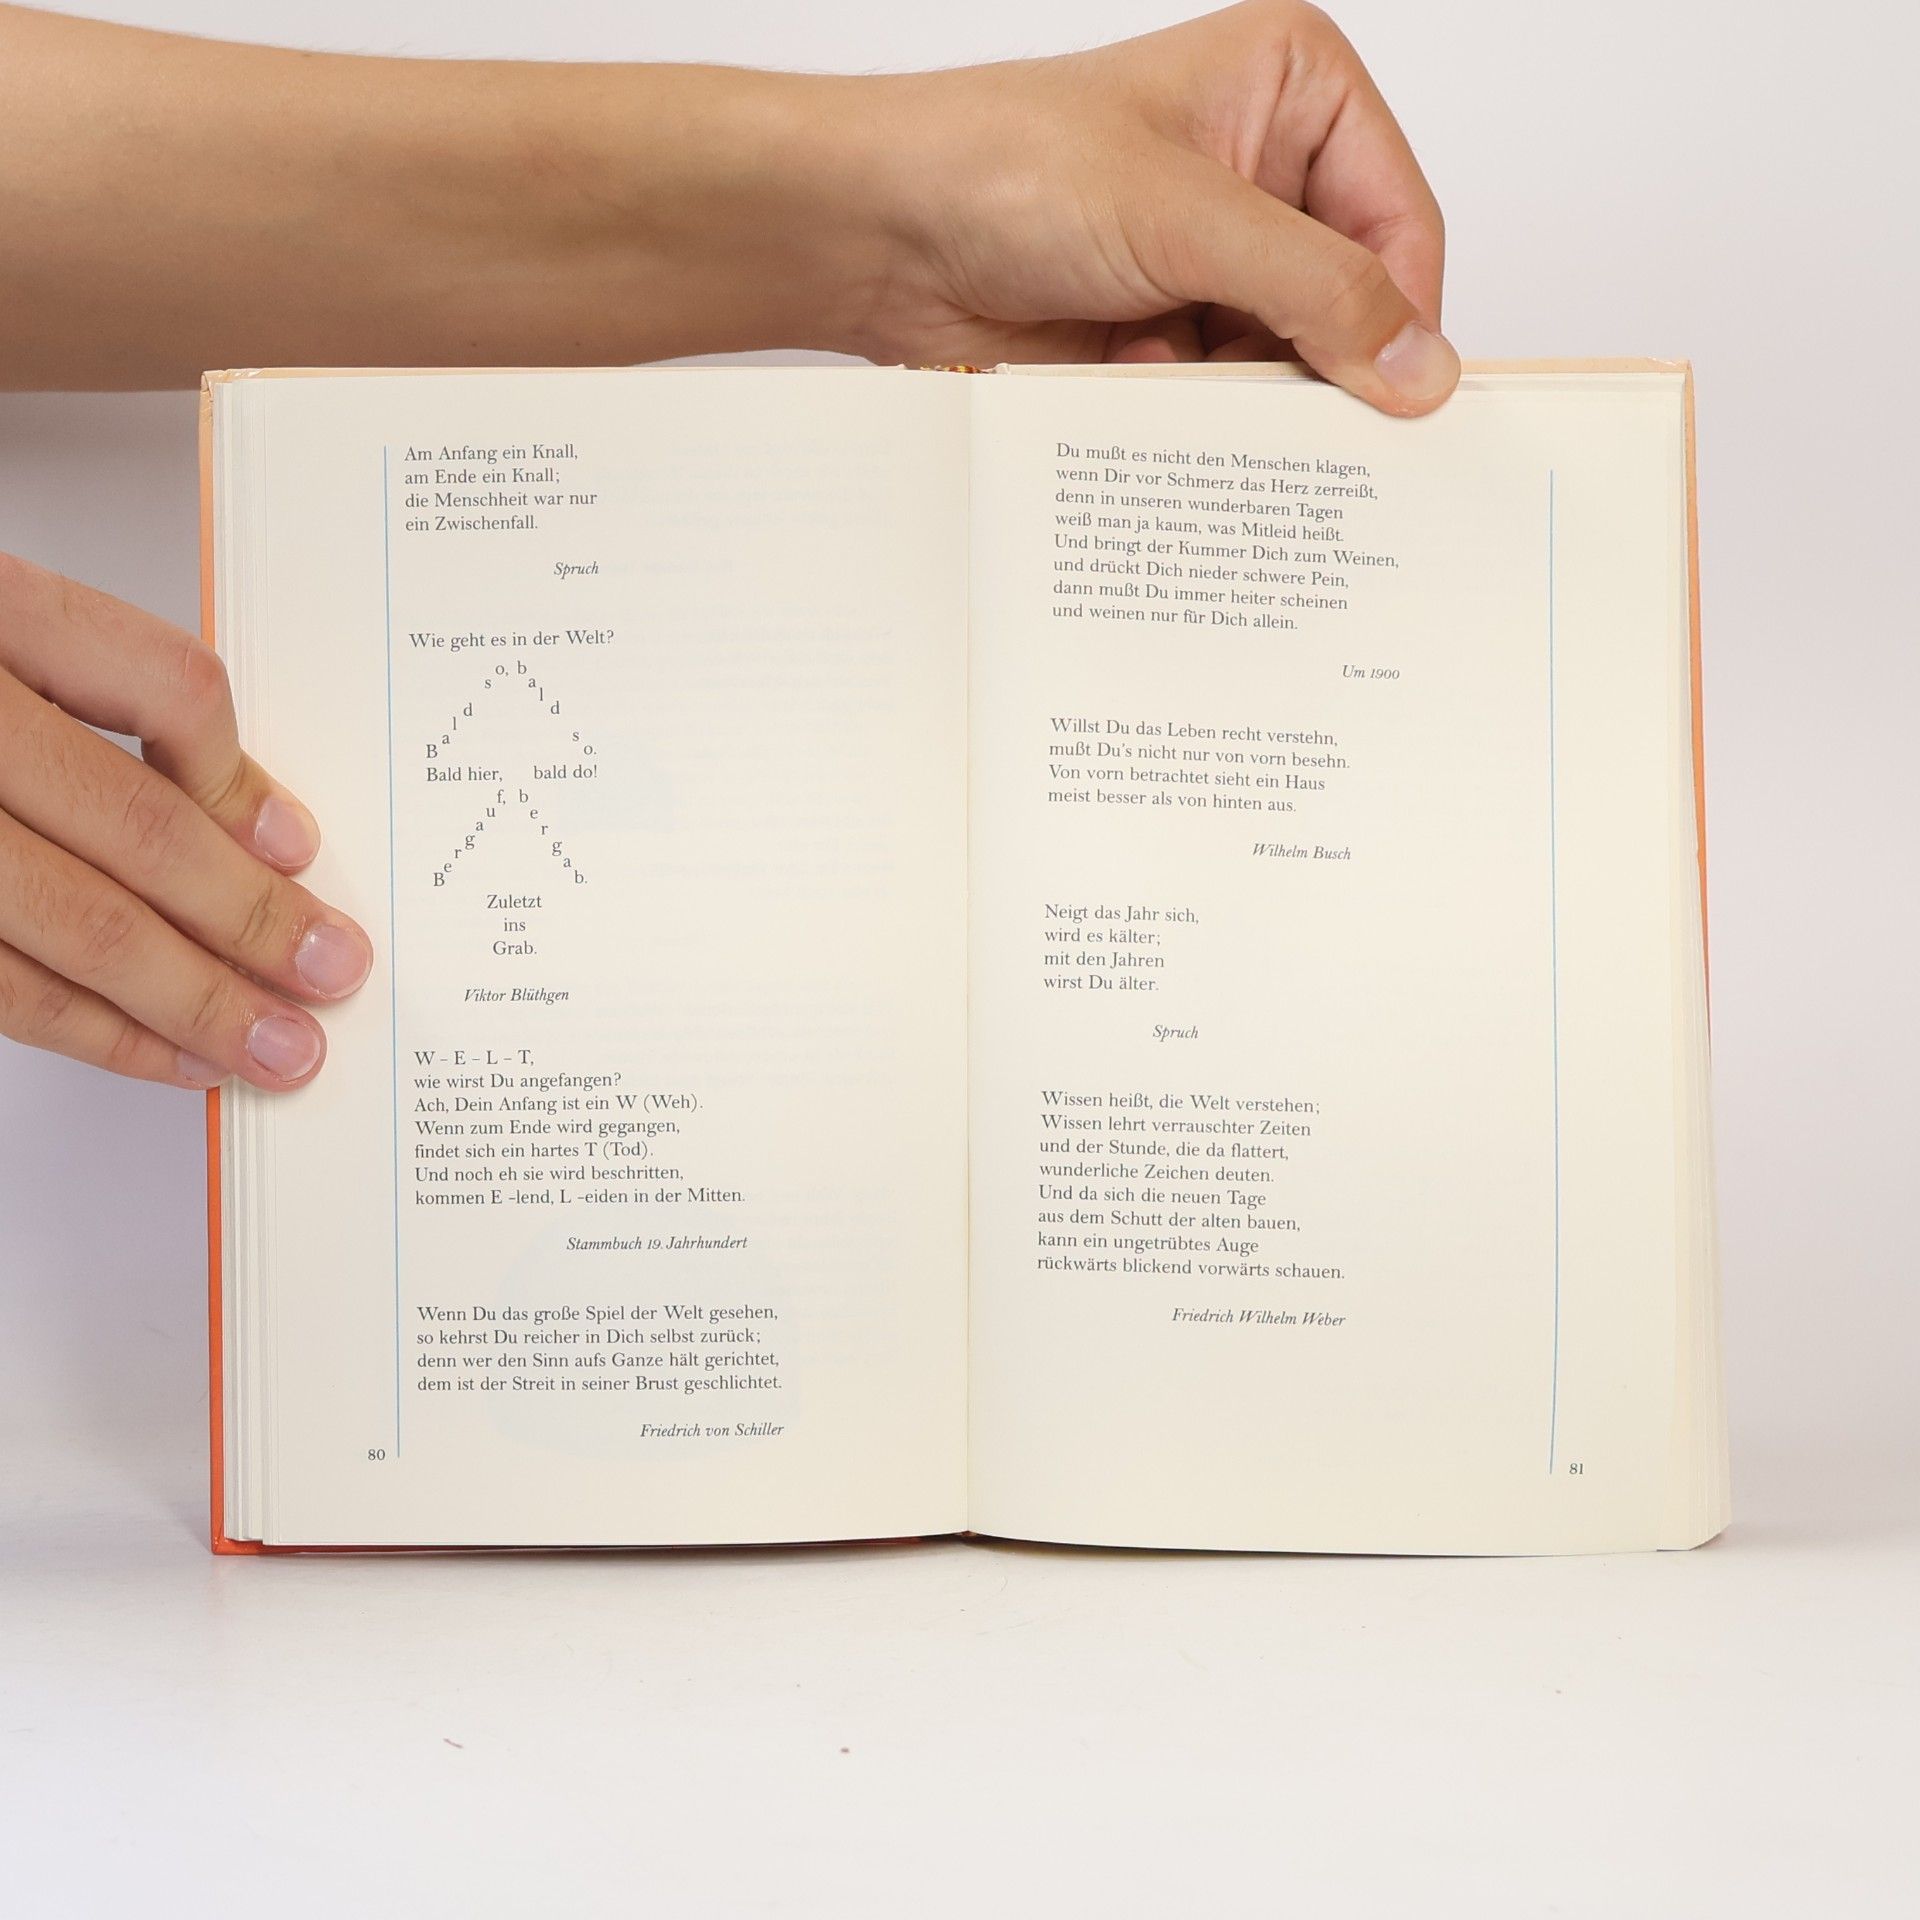 Am Anfang ein Knall,
am Ende ein Knall;
die Menschheit war nur
ein Zwischenfall.
Spruch
Wie geht es in der Welt?
Bald so, bald so.
Bald hier, bald do!
Bergauf, bergab.
Zuletzt
ins
Grab.
Viktor Blüthgen
W – E – L – T,
wie wirst Du angefangen?
Ach, Dein Anfang ist ein W (Weh).
Wenn zum Ende wird gegangen,
findet sich ein hartes T (Tod).
Und noch eh sie wird beschritten,
kommen E -lend, L -eiden in der Mitten.
Stammbuch 19. Jahrhundert
Wenn Du das große Spiel der Welt gesehen,
so kehrst Du reicher in Dich selbst zurück;
denn wer den Sinn aufs Ganze hält gerichtet,
dem ist der Streit in seiner Brust geschlichtet.
Friedrich von Schiller
80
Du mußt es nicht den Menschen klagen,
wenn Dir vor Schmerz das Herz zerreißt,
denn in unseren wunderbaren Tagen
weiß man ja kaum, was Mitleid heißt.
Und bringt der Kummer Dich zum Weinen,
und drückt Dich nieder schwere Pein,
dann mußt Du immer heiter scheinen
und weinen nur für Dich allein.
Um 1900
Willst Du das Leben recht verstehn,
mußt Du's nicht nur von vorn besehn.
Von vorn betrachtet sieht ein Haus
meist besser als von hinten aus.
Wilhelm Busch
Neigt das Jahr sich,
wird es kälter;
mit den Jahren
wirst Du älter.
Spruch
Wissen heißt, die Welt verstehen;
Wissen lehrt verrauschter Zeiten
und der Stunde, die da flattert,
wunderliche Zeichen deuten.
Und da sich die neuen Tage
aus dem Schutt der alten bauen,
kann ein ungetrübtes Auge
rückwärts blickend vorwärts schauen.
Friedrich Wilhelm Weber
81